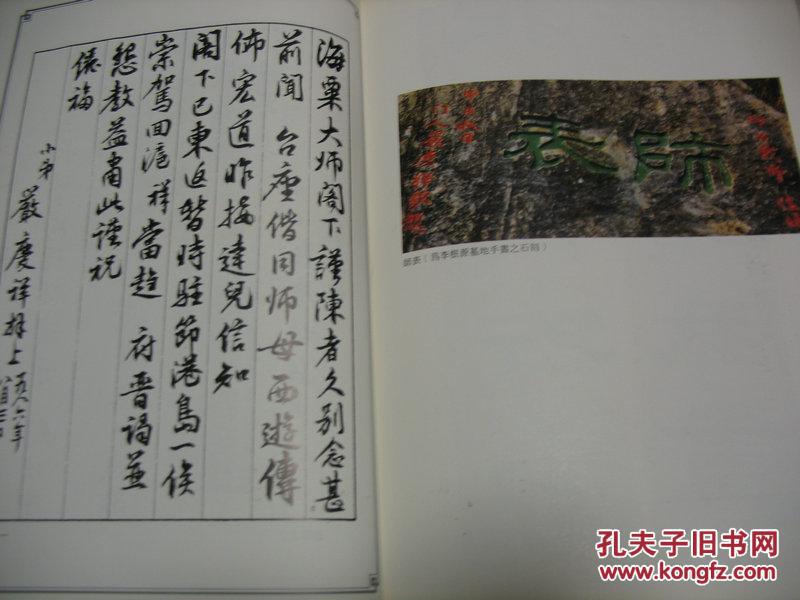 海粟大师阁下謹陳者久别念甚
前闻 台座偕同师母西遊傳
佈宏道昨接達兒信知
阁下已東返暂時駐節港島一俟
崇駕回滬祥當趋 府晋谒並
懇教益肃此谨祝
俪福
小弟 嚴慶祥拜上
師表
師表（爲李根源墓地手書之石刻）
孔夫子旧书网
www.kongfz.com